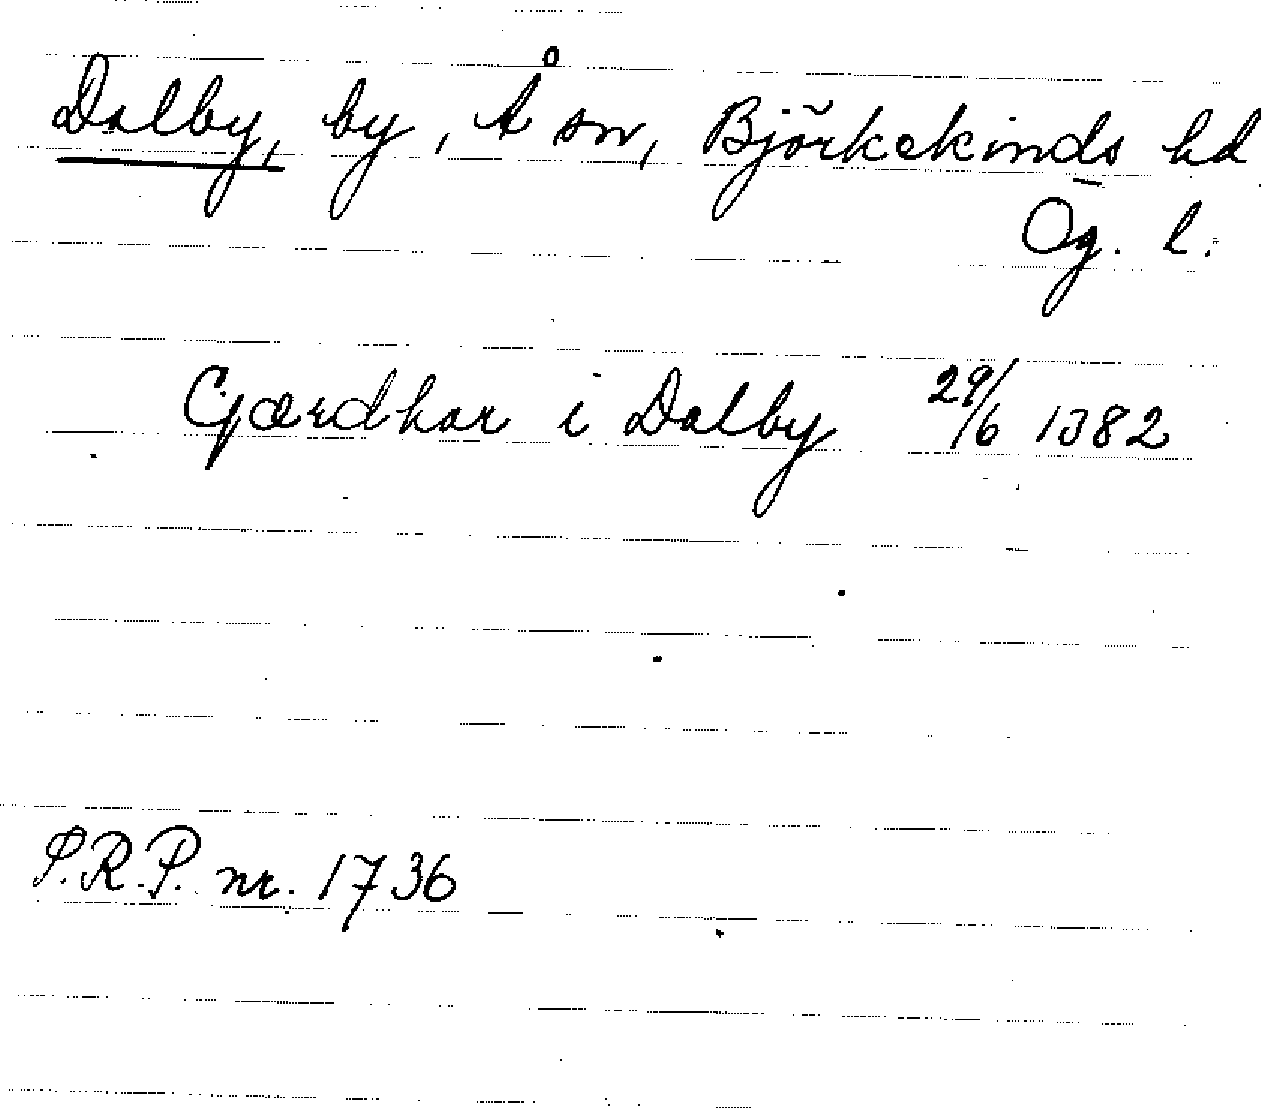 Dalby, by, Å sn, Björkekinds hd
Ög. l.
Gærdhar i Dalby 29/6 1382
S.R.P. nr. 1736